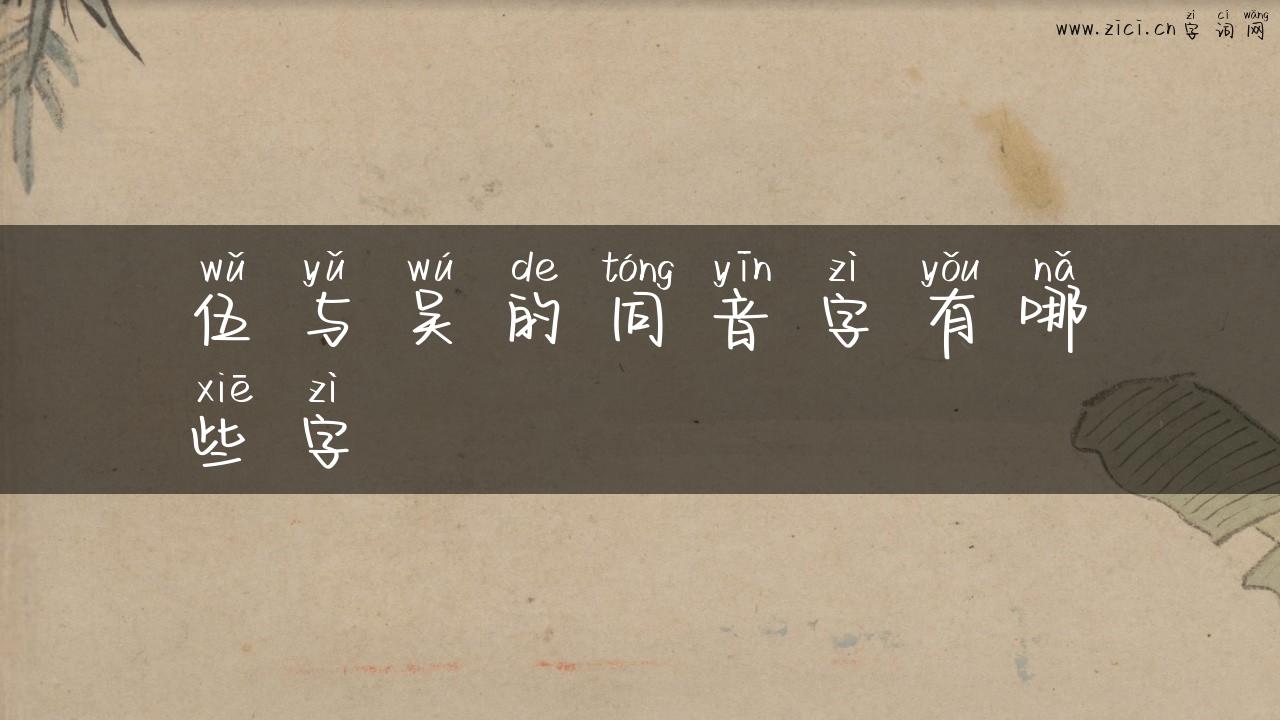 zì cí wǎng
www.zici.cn 字 词 网
wǔ yǔ wú de tóng yīn zì yǒu nǎ
伍 与 吴 的 同 音 字 有 哪
xiē zì
些 字